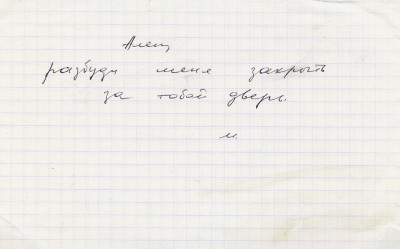 Алең
разбуди меня закрыть
за тобой дверь.
м.